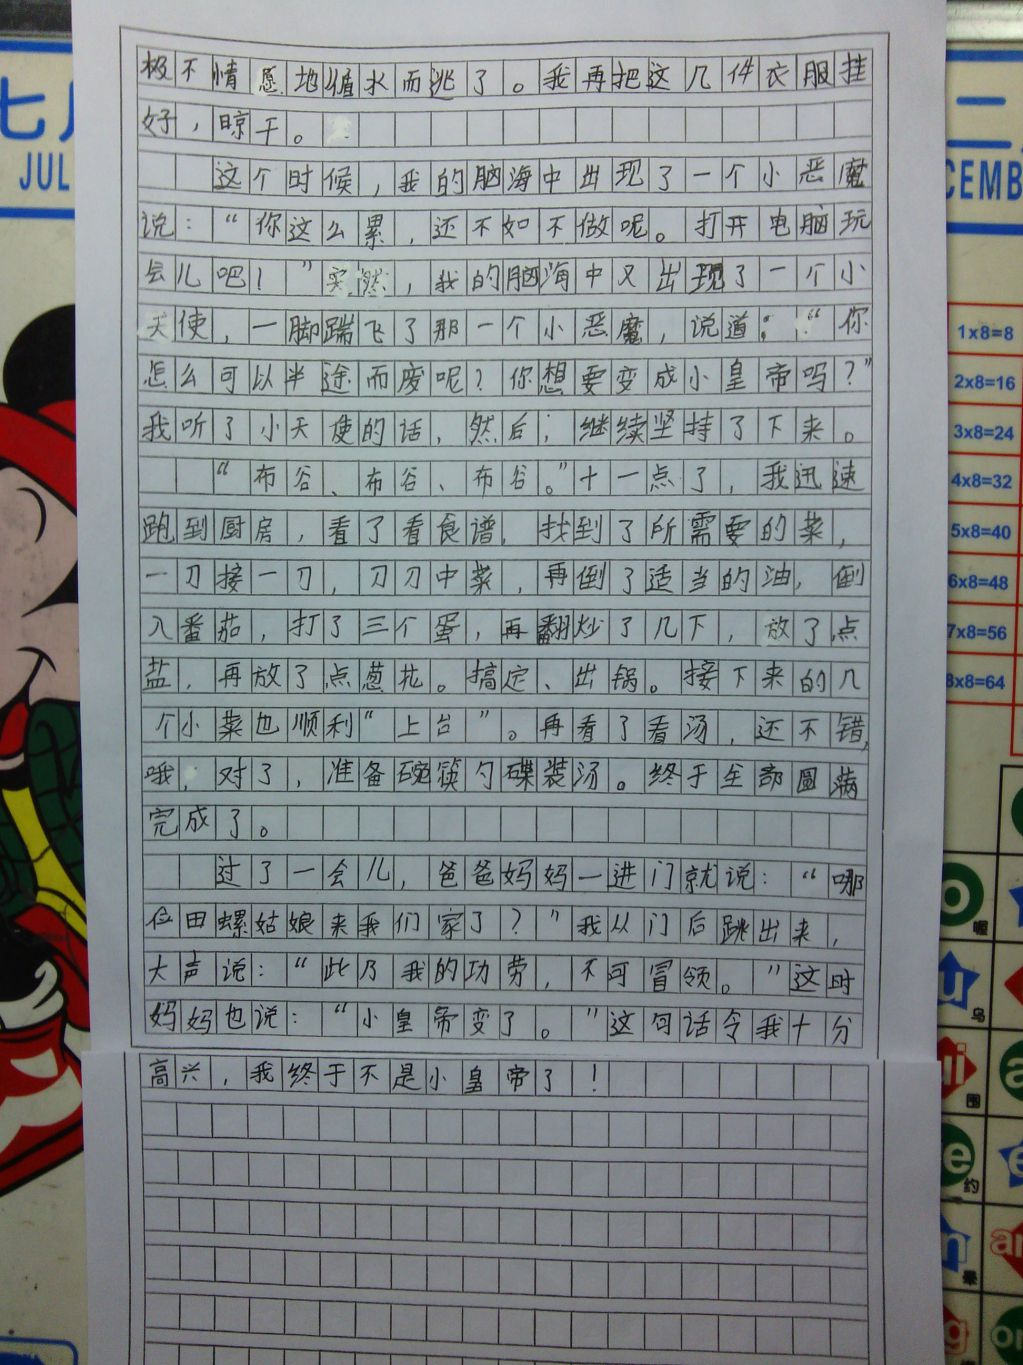 极不情愿地随水而逃了。我再把这几件衣服挂
好，晾干。
这个时候，我的脑海中出现了一个小恶魔
说：“你这么累，还不如不做呢。打开电脑玩
会儿吧！”突然，我的脑海中又出现了一个小
天使，一脚踹飞了那一个小恶魔，说道：“你
怎么可以半途而废呢？你想要变成小皇帝吗？”
我听了小天使的话，然后；继续坚持了下来。
“布谷、布谷、布谷。”十一点了，我迅速
跑到厨房，看了看食谱，找到了所需要的菜，
一刀接一刀，刀刀中菜，再倒了适当的油，倒
入番茄，打了三个蛋，再翻炒了几下，放了点
盐，再放了点葱花。搞定、出锅。接下来的几
个小菜也顺利“上台”。再看了看汤，还不错，
哦，对了，准备碗筷勺碟装汤。终于全部圆满
完成了。
过了一会儿，爸爸妈妈一进门就说：“哪
位田螺姑娘来我们家了？”我从门后跳出来，
大声说：“此乃我的功劳，不可冒领。”这时
妈妈也说：“小皇帝变了。”这句话令我十分
高兴，我终于不是小皇帝了！
七月
JUL
二
CEMB
1x8=8
2x8=16
3x8=24
4x8=32
5x8=40
6x8=48
7x8=56
8x8=64
o
喔
u
乌
ui
围
e
约
n
g